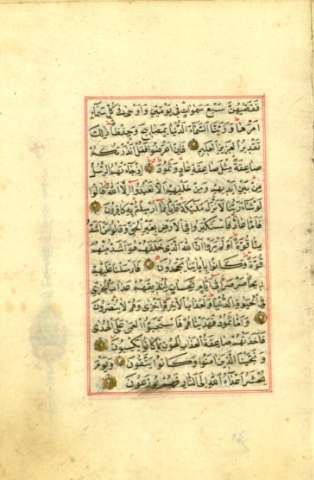 فَقَضٰيهُنَّ سَبْعَ سَمٰوَاتٍ فِي يَوْمَيْنِ وَاَوْحٰى فِي كُلِّ سَمَاءٍ
اَمْرَهَا وَزَيَّنَّا السَّمَاءَ الدُّنْيَا بِمَصَابِيحَ وَحِفْظًا ذٰلِكَ
تَقْدِيرُ الْعَزِيزِ الْعَلِيمِ فَاِنْ اَعْرَضُوا فَقُلْ اَنْذَرْتُكُمْ
صَاعِقَةً مِثْلَ صَاعِقَةِ عَادٍ وَثَمُودَ اِذْ جَاءَتْهُمُ الرُّسُلُ
مِنْ بَيْنِ اَيْدِيهِمْ وَمِنْ خَلْفِهِمْ اَلَّا تَعْبُدُوا اِلَّا اللّٰهَ قَالُوا
لَوْ شَاءَ رَبُّنَا لَاَنْزَلَ مَلٰئِكَةً فَاِنَّا بِمَا اُرْسِلْتُمْ بِهِ كَافِرُونَ
فَاَمَّا عَادٌ فَاسْتَكْبَرُوا فِي الْاَرْضِ بِغَيْرِ الْحَقِّ وَقَالُوا مَنْ اَشَدُّ
مِنَّا قُوَّةً اَوَلَمْ يَرَوْا اَنَّ اللّٰهَ الَّذِي خَلَقَهُمْ هُوَ اَشَدُّ مِنْهُمْ
قُوَّةً وَكَانُوا بِاٰيَاتِنَا يَجْحَدُونَ فَاَرْسَلْنَا عَلَيْهِمْ
رِيحًا صَرْصَرًا فِي اَيَّامٍ نَحِسَاتٍ لِنُذِيقَهُمْ عَذَابَ الْخِزْيِ
فِي الْحَيٰوةِ الدُّنْيَا وَلَعَذَابُ الْاٰخِرَةِ اَخْزٰى وَهُمْ لَا يُنْصَرُونَ
وَاَمَّا ثَمُودُ فَهَدَيْنَاهُمْ فَاسْتَحَبُّوا الْعَمٰى عَلَى الْهُدٰى
فَاَخَذَتْهُمْ صَاعِقَةُ الْعَذَابِ الْهُونِ بِمَا كَانُوا يَكْسِبُونَ
وَنَجَّيْنَا الَّذِينَ اٰمَنُوا وَكَانُوا يَتَّقُونَ وَيَوْمَ
يُحْشَرُ اَعْدَاءُ اللّٰهِ اِلَى النَّارِ فَهُمْ يُوزَعُونَ